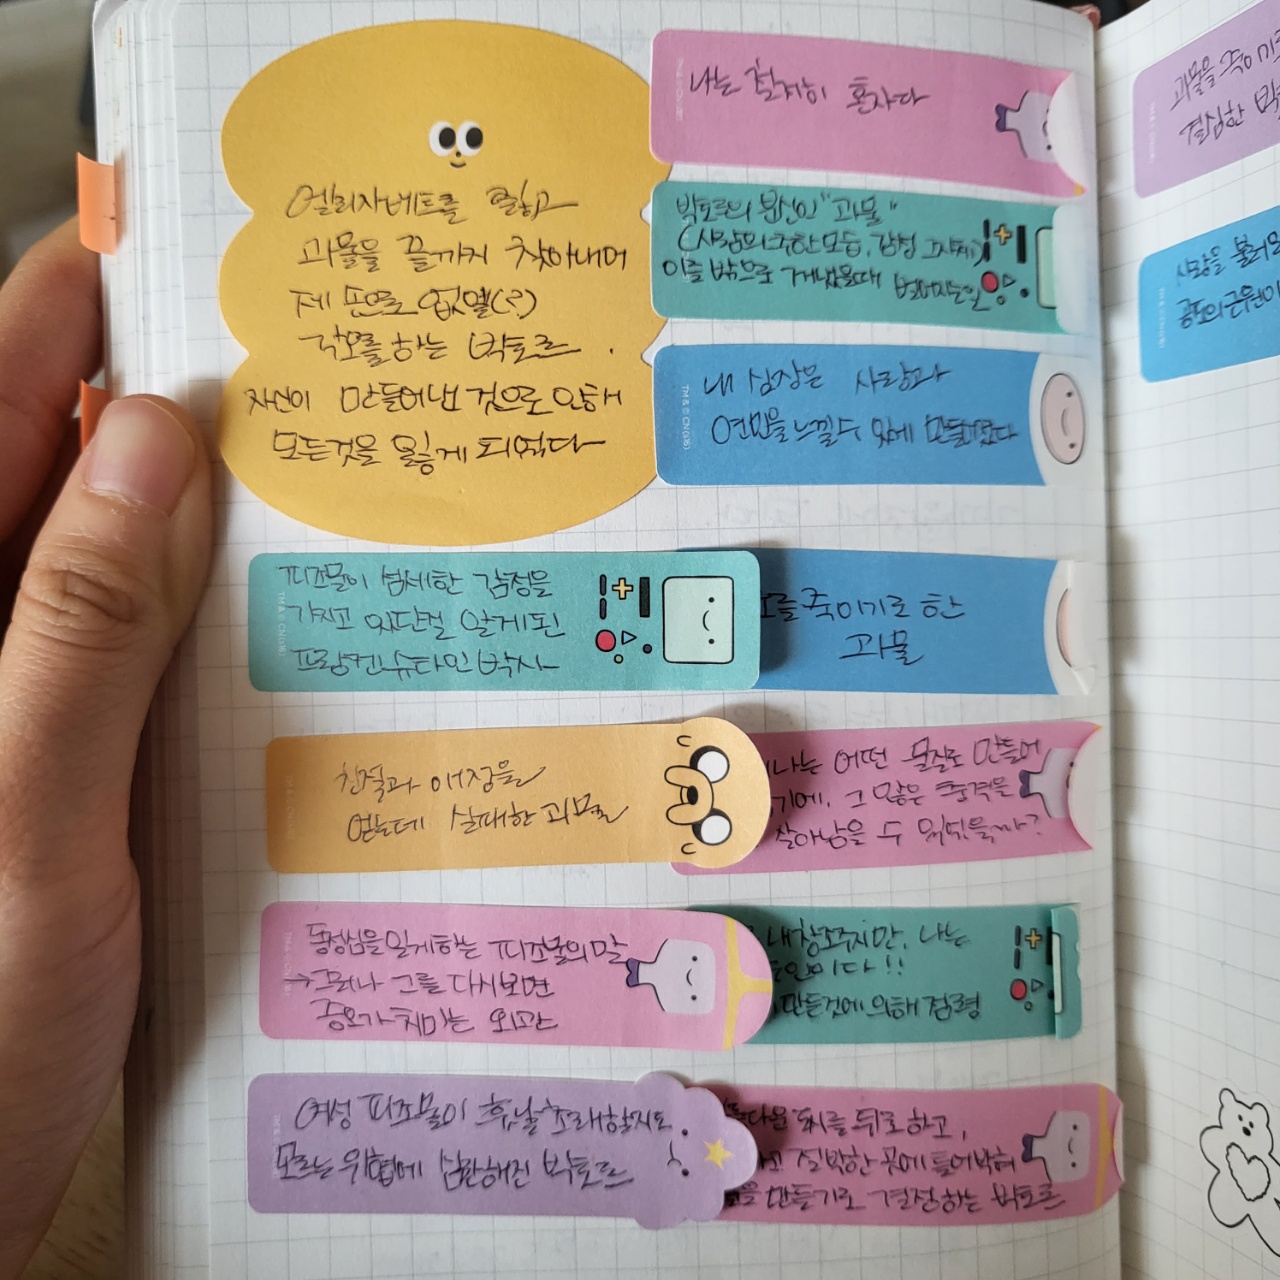 엘리자베트를 잃고
괴물을 끝까지 찾아내어
제 손으로 없앨(?)
각오를 하는 빅토르.
자신이 만들어낸 것으로 인해
모든것을 잃게 되었다
나는 철저히 혼자다
빅토르의 분신인 "괴물"
(사람의 추한모습, 감정 그 자체)
이를 밖으로 꺼냈을때 벌어지는일
내 심장은 사랑과
연민을 느낄수 있게 만들어졌다
피조물이 섬세한 감정을
가지고 있단걸 알게된
프랑켄슈타인 박사
를 죽이기로 한
괴물
친절과 애정을
얻는데 실패한 괴물
나는 어떤 물질로 만들어
기에, 그 많은 충격을
살아남을 수 있었을까?
동정심을 일게하는 피조물의 말
→그러나 그를 다시보면
증오가 치미는 외관
내 창조주지만, 나는
인이다!!
만든것에 의해 점령
여성 피조물이 훗날 초래할지도
모르는 위협에 심란해진 빅토르
뒤로 하고,
절박한 곳에 틀어박혀
을 만들기로 결정하는 빅토르
괴물을 죽이기
결심한 빅
사랑을 불러
공포의 근원이
TM & © CN